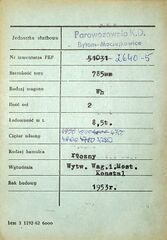 Jednostka służbowa
Parowozownia K.D.
Bytom-Maciejkowice
Nr inwentarza PKP 51031 2640-5
Szerokość toru 785mm
Rodzaj wagonu Wh
Ilość osi 2
Ładowność w t. 8,5t.
Ciężar własny
Rodzaj hamulca
Ręczny
Wytwórnia Wytw. Wag. i. Most.
Konstal
Rok budowy 1953r.